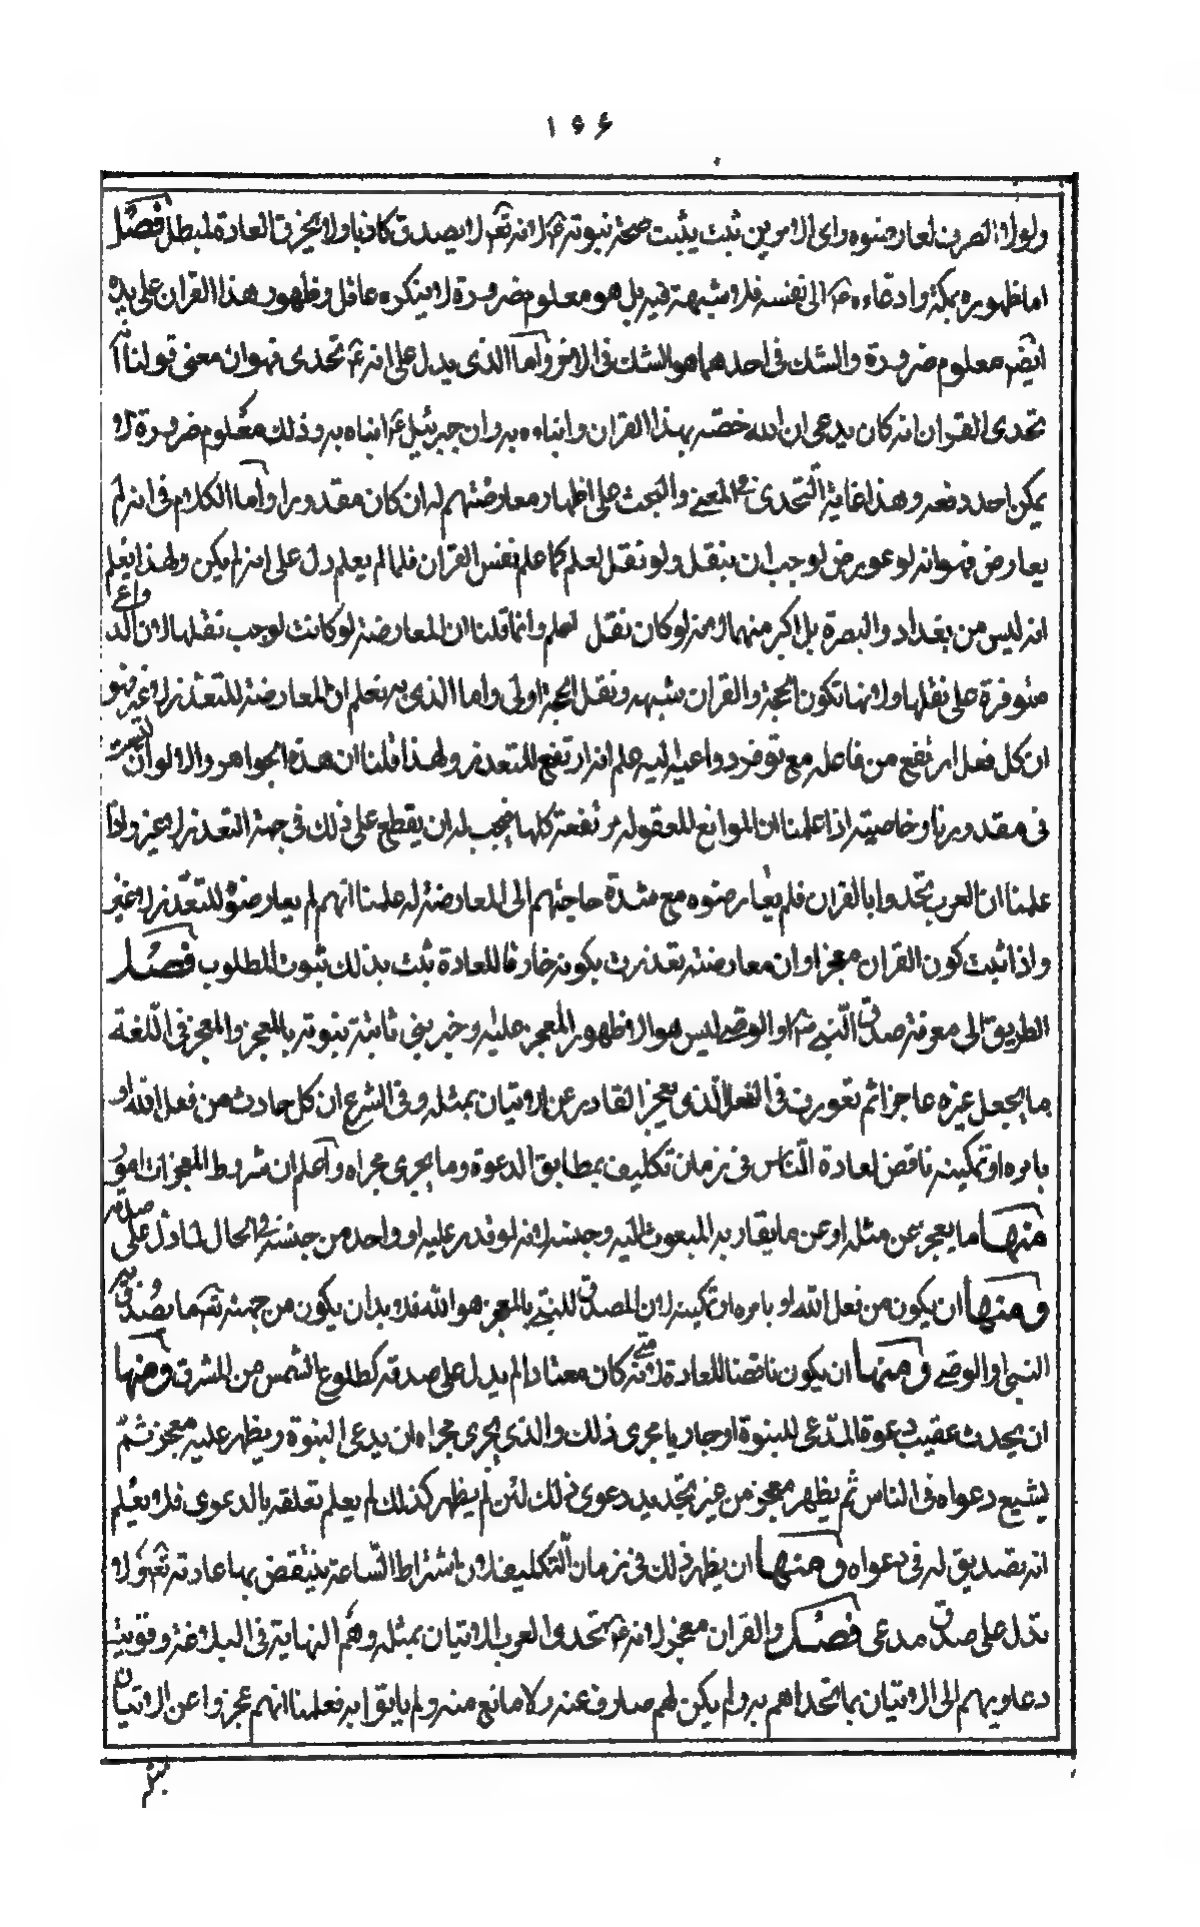 ١٥٦
ولولا الصرف لعارضوه واى الامرين ثبت يثبت صحة نبوته ع لانه تع لا يصدق كاذبا ولا يخرق العادة لمبطل فصل
اما ظهوره بمكة وادعاءه ص الى نفسه فلا شبهة فيه بل هو معلوم ضرورة لا ينكره عاقل وظهور هذا القران على يده
ايض معلوم ضرورة والشك فى احدهما هو الشك فى الاخر واما الذى يدل على انه ع تحدى فهو ان معنى قولنا انه
تحدى القران انه كان يدعى ان الله خصه بهذا القران وانباءه به وان جبرئيل ع اتباه به وذلك معلوم ضرورة لا
يمكن احد دفعه وهذا غاية التحدى فى المعنى والبحث على اظهار معارضتهم له ان كان مقدورا واما الكلام فى انه لم
يعارض فهو انه لو عورض لوجب ان ينقل ولو نقل لعلم كما علم نفس القران فلما لم يعلم دل على انه لم يكن ولهذا يعلم
انه ليس من بغداد والبصرة بل اكبر منهما لانه لو كان نقل لعلم وانما قلنا ان المعارضة لو كانت لوجب نقلها لان الدواعى
متوفرة على نقلها ولانها تكون الحجة والقران شبهه ونقل الحجة اولى واما الذى به نعلم ان المعارضة للتعذر لا غير فهو
ان كل فعل ارتفع من فاعله مع توفر دواعيه اليه علم انه ارتفع للتعذر ولهذا قلنا ان هذه الجواهر والالوان ليست
فى مقدورنا وخاصيته اذا علمنا ان الموانع المعقوله مرتفعة كلها فيجب له ان يقطع على ذلك فى جهة التعذر لا غير واذا
علمنا ان العرب تحدوا بالقران فلم يعارضوه مع شدة حاجتهم الى المعارضة له علمنا انهم لم يعارضوه للتعذر لا غير
واذا ثبت كون القران معجزا وان معارضته تعذرت بكونه خارقا للعادة ثبت بذلك ثبوت المطلوب فصل
الطريق الى معرفة صدق النبى ص او الوصى ليس هو الا ظهور المعجز عليه وخبر نبى ثابتة نبوته بالمعجز والمعجز فى اللغة
ما يجعل غيره عاجزا ثم تعورف فى الفعل الذى يعجز القادر عن الاتيان بمثله وفى الشرع ان كل حادث من فعل الله او
بامره او تمكينه ناقض لعادة الناس فى زمان تكليف بمطابق الدعوة وما يجرى مجراه واعلم ان شروط المعجزات امور
منها ما يعجز عن مثله او عن ما يقاربه المبعوث اليه وجنسه لانه لو قدر عليه او واحد من جنسه فى الحال لما دل على صدقه
ومنها ان يكون من فعل الله او بامره او تمكينه لان المصدق للنبى بالمعجز هو الله فلا بد ان يكون من جهته تع ما يصدق به
النبى والوصى ومنها ان يكون ناقضا للعادة لانه متى كان معتادا لم يدل على صدقه كطلوع الشمس من المشرق ومنها
ان يحدث عقيب دعوة المدعى للنبوة او جاريا مجرى ذلك والذى يجرى مجراه ان يدعى النبوة ويظهر عليه معجز ثم
يشيع دعواه فى الناس ثم يظهر معجز من غير تجديد دعوى ذلك لئن لم يظهر كذلك لم يعلم تعلقه بالدعوى فلا يعلم
انه تصديق له فى دعواه ومنها ان يظهر ذلك فى زمان التكليف لان اشراط الساعة ينتقض بها عادته تع ولا
تدل على صدق مدعى فصل والقران معجز لانه ع تحدى العرب الاتيان بمثله وهم النهاية فى البلاغة وتوفرت
دعاويهم الى الاتيان بما تحداهم به ولم يكن لهم صارف عنه ولا مانع منه ولم ياتوا به فعلمنا انهم عجزوا عن الاتيان
بمثله